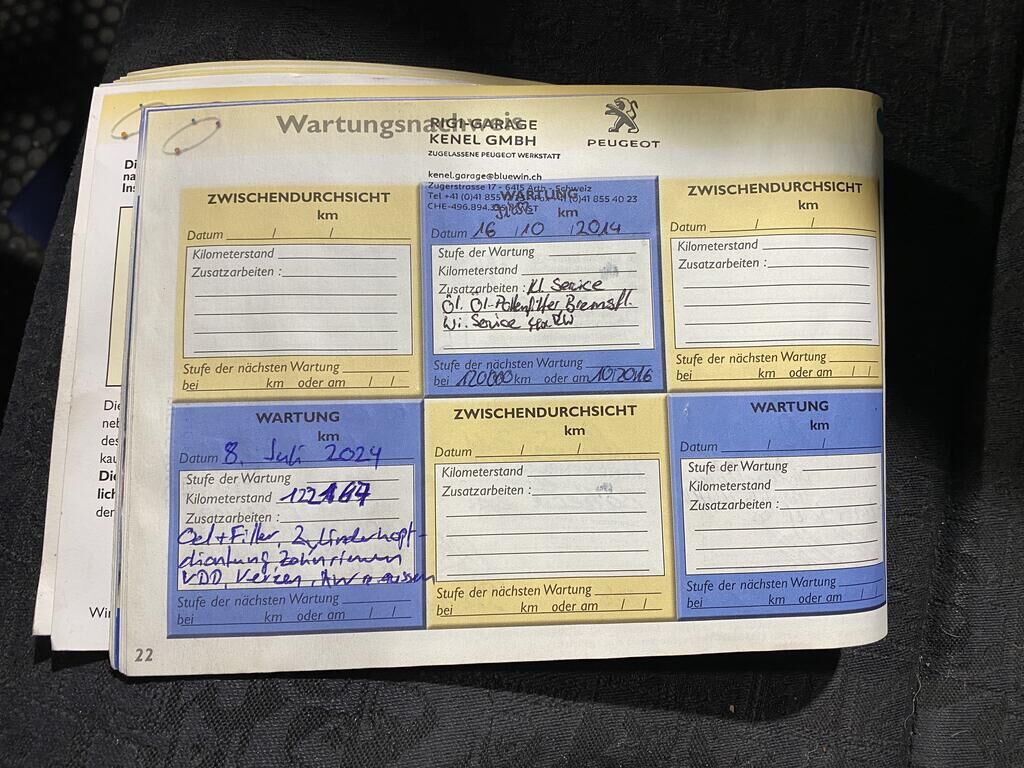 Wartungsnachweis
RIGI-GARAGE
KENEL GMBH
ZUGELASSENE PEUGEOT WERKSTATT
kenel.garage@bluewin.ch
Zugerstrasse 17 - 6415 Arth - Schweiz
Tel +41 (0)41 855 (0)41 855 40 23
CHE-496.894. MWST
PEUGEOT
ZWISCHENDURCHSICHT
km
Datum / /
Kilometerstand
Zusatzarbeiten :
Stufe der nächsten Wartung
bei km oder am / /
WARTUNG
km
Datum 16 / 10 / 2014
Stufe der Wartung
Kilometerstand
Zusatzarbeiten : Kl. Service
Öl. Öl-Pollenfilter, Bremsfl.
Wi. Service
Stufe der nächsten Wartung
bei 120000 km oder am 10/2016
ZWISCHENDURCHSICHT
km
Datum / /
Kilometerstand
Zusatzarbeiten :
Stufe der nächsten Wartung
bei km oder am / /
WARTUNG
km
Datum 8. Juli 2024
Stufe der Wartung
Kilometerstand 122167
Zusatzarbeiten :
Oel+Filter, Zylinderkopf-
dichtung, Zahnriemen
VDD, Kerzen,
Stufe der nächsten Wartung
bei km oder am / /
ZWISCHENDURCHSICHT
km
Datum / /
Kilometerstand
Zusatzarbeiten :
Stufe der nächsten Wartung
bei km oder am / /
WARTUNG
km
Datum / /
Stufe der Wartung
Kilometerstand
Zusatzarbeiten :
Stufe der nächsten Wartung
bei km oder am / /
22